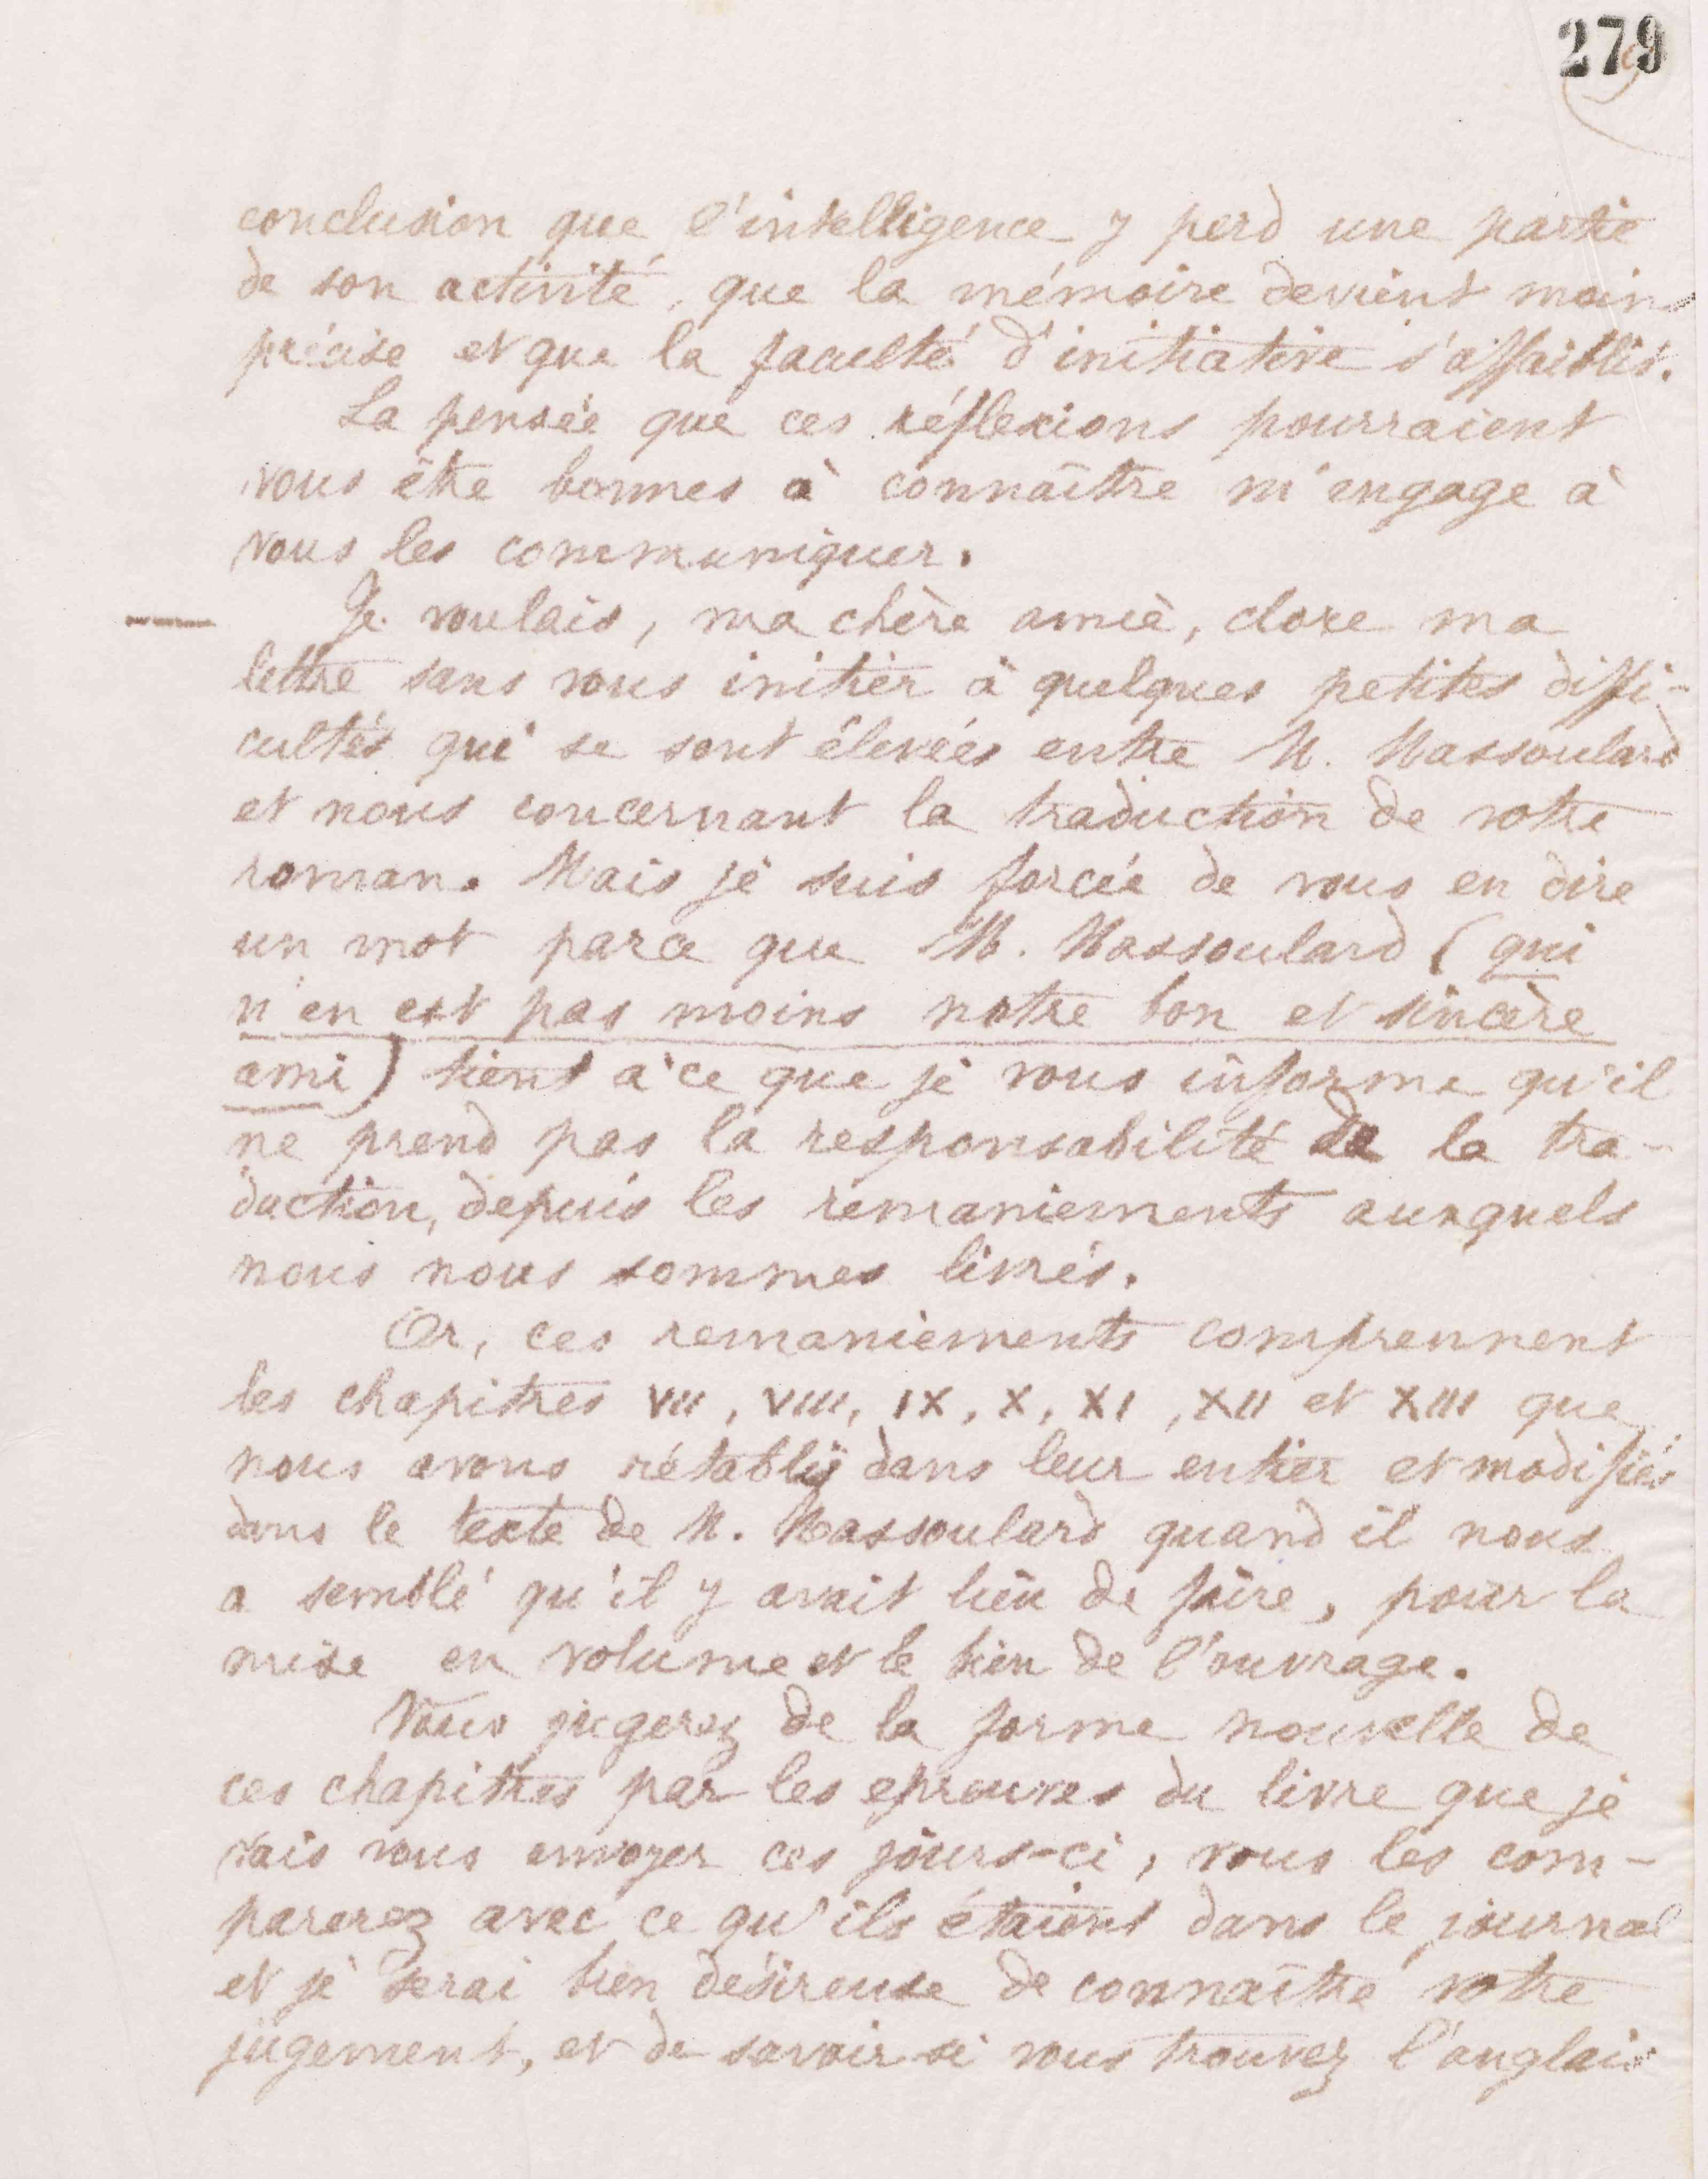 279
conclusion que l'intelligence y perd une partie
de son activité, que la mémoire devient moins
précise et que la faculté d'initiative s'affaiblit.
La pensée que ces réflexions pourraient
vous être bonnes à connaître m'engage à
vous les communiquer.
Je voulais, ma chère amie, clore ma
lettre sans vous initier à quelques petites diffi-
cultés qui se sont élevées entre M. Massoulard
et nous concernant la traduction de votre
roman. Mais je suis forcée de vous en dire
un mot parce que M. Massoulard (qui
n'en est pas moins notre bon et sincère
ami) tient à ce que je vous informe qu'il
ne prend pas la responsabilité de la tra-
duction, depuis les remaniements auxquels
nous nous sommes livrés.
Or, ces remaniements comprennent
les chapitres VII, VIII, IX, X, XI, XII et XIII que
nous avons rétablis dans leur entier et modifiés
dans le texte de M. Massoulard quand il nous
a semblé qu'il y avait lieu de faire, pour la
mise en volume et le bien de l'ouvrage.
Vous jugerez de la forme nouvelle de
ces chapitres par les epreuves du livre que je
vais vous envoyer ces jours-ci, vous les com-
parerez avec ce qu'ils étaient dans le journal
et je serai bien désireuse de connaître votre
jugement, et de savoir si vous trouvez l'anglais